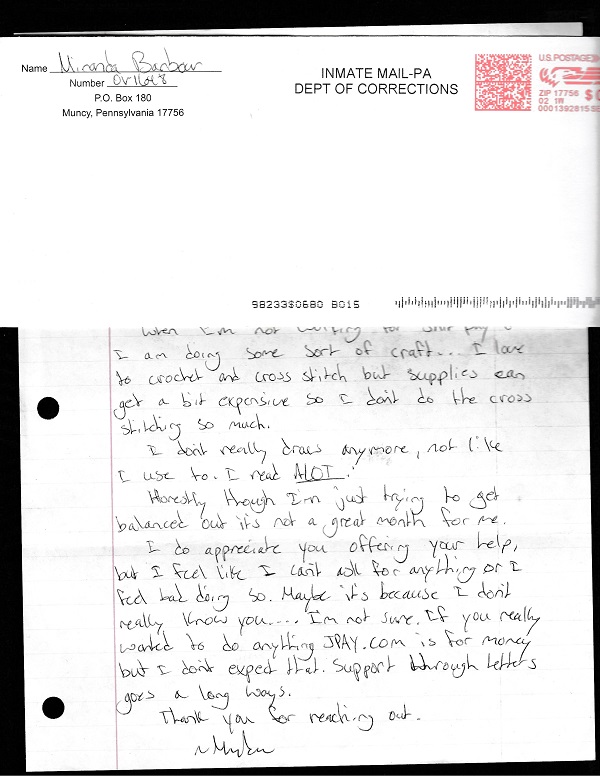 Name Miranda Barbour
Number OV1168
P.O. Box 180
Muncy, Pennsylvania 17756
INMATE MAIL-PA
DEPT OF CORRECTIONS
U.S. POSTAGE
ZIP 17756 $0
02 1W
0001392815
98233$0680 B015
When I'm not waiting for
I am doing some sort of craft... I love
to crochet and cross stitch but supplies can
get a bit expensive so I don't do the cross
stitching so much.
I don't really draw anymore, not like
I use to. I read ALOT!
Honestly though I'm just trying to get
balanced out it's not a great month for me.
I do appreciate you offering your help,
but I feel like I can't ask for anything or I
feel bad doing so. Maybe it's because I don't
really know you.... I'm not sure. If you really
wanted to do anything JPAY.com is for money
but I don't expect that. Support through letters
goes a long ways.
Thank you for reaching out.